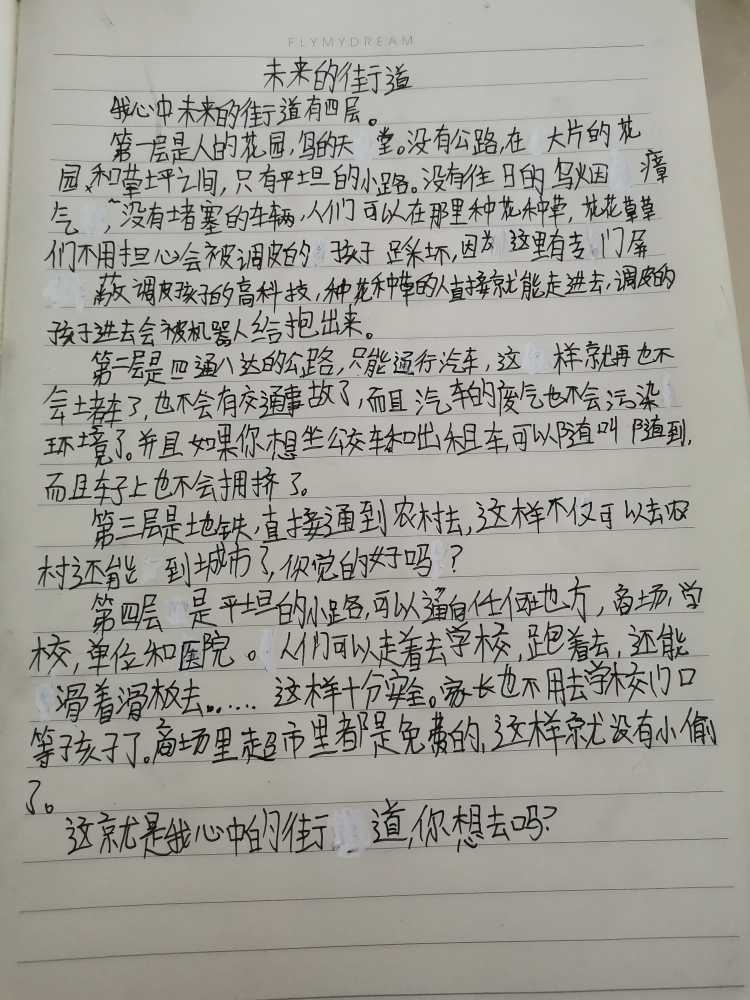 FLYMYDREAM
未来的街道
我心中未来的街道有四层。
第一层是人的花园,鸟的天堂。没有公路,在大片的花
园和草坪之间,只有平坦的小路。没有往日的乌烟瘴
气,没有堵塞的车辆,人们可以在那里种花种草,花花草草
们不用担心会被调皮的孩子踩坏,因为这里有专门屏
蔽调皮孩子的高科技,种花种草的人直接就能走进去,调皮的
孩子进去会被机器人给抱出来。
第二层是四通八达的公路,只能通行汽车,这样就再也不
会堵车了,也不会有交通事故了,而且汽车的废气也不会污染
环境了。并且如果你想坐公交车和出租车,可以随叫随到,
而且车子上也不会拥挤了。
第三层是地铁,直接通到农村去,这样不仅可以去农
村还能到城市了,你觉的好吗?
第四层是平坦的小路,可以通向任何地方,商场,学
校,单位和医院。人们可以走着去学校,跑着去,还能
滑着滑板去……这样十分安全。家长也不用去学校门口
等孩子了。商场里超市里都是免费的,这样就没有小偷
了。
这就是我心中的街道,你想去吗?